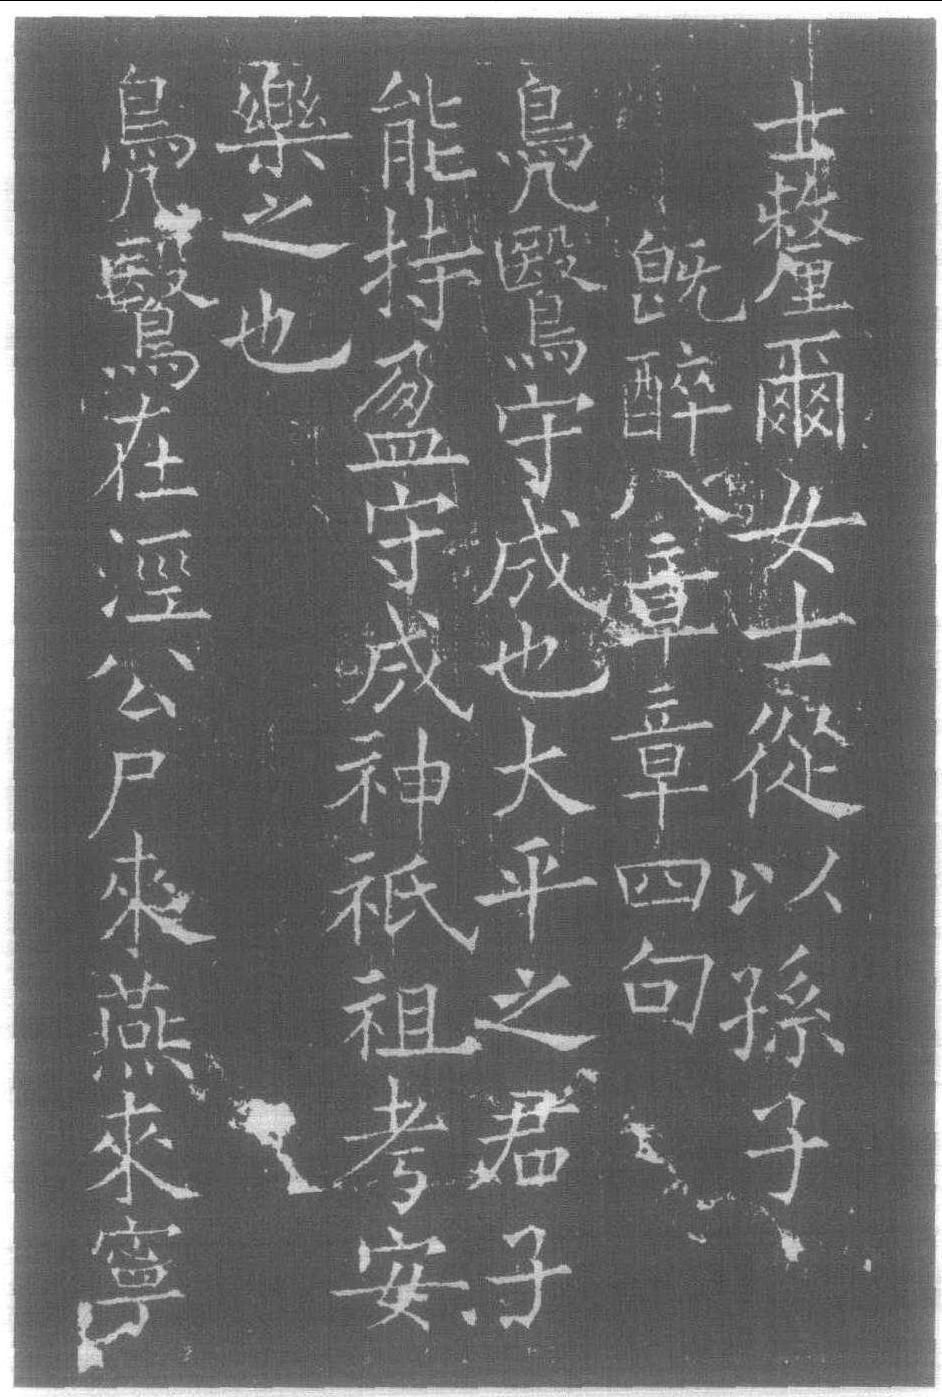 士釐爾女士從以孫子
既醉八章章四句
鳧鷖守成也大平之君子
能持盈守成神祇祖考安
樂之也
鳧鷖在涇公尸來燕來寧